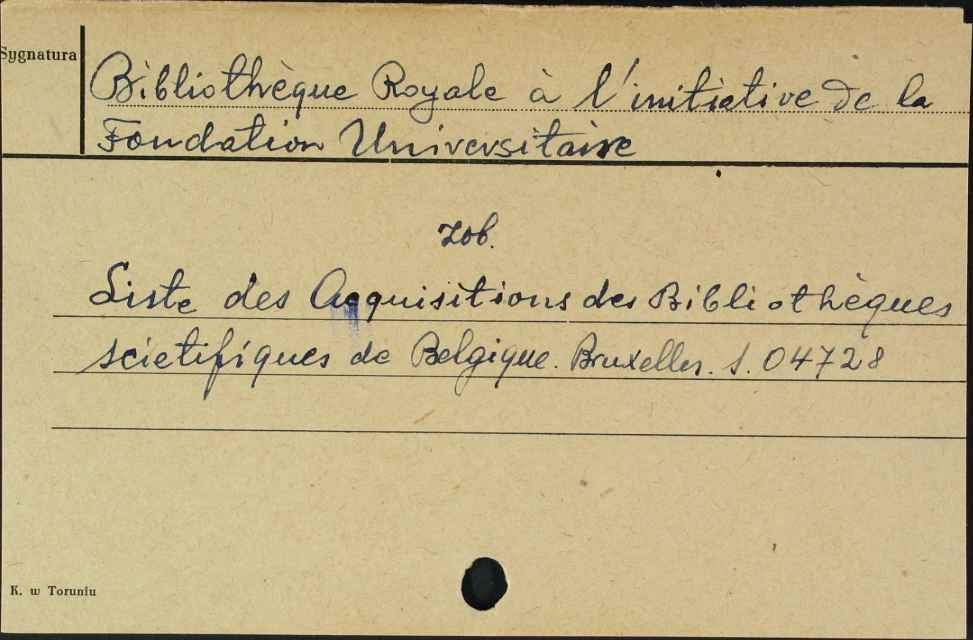 Sygnatura
Bibliothèque Royale à l'initiative de la
Fondation Universitaire
zob.
Liste des Acquisitions des Bibliothèques
scietifiques de Belgique. Bruxelles. S. 04728
K. w Toruniu